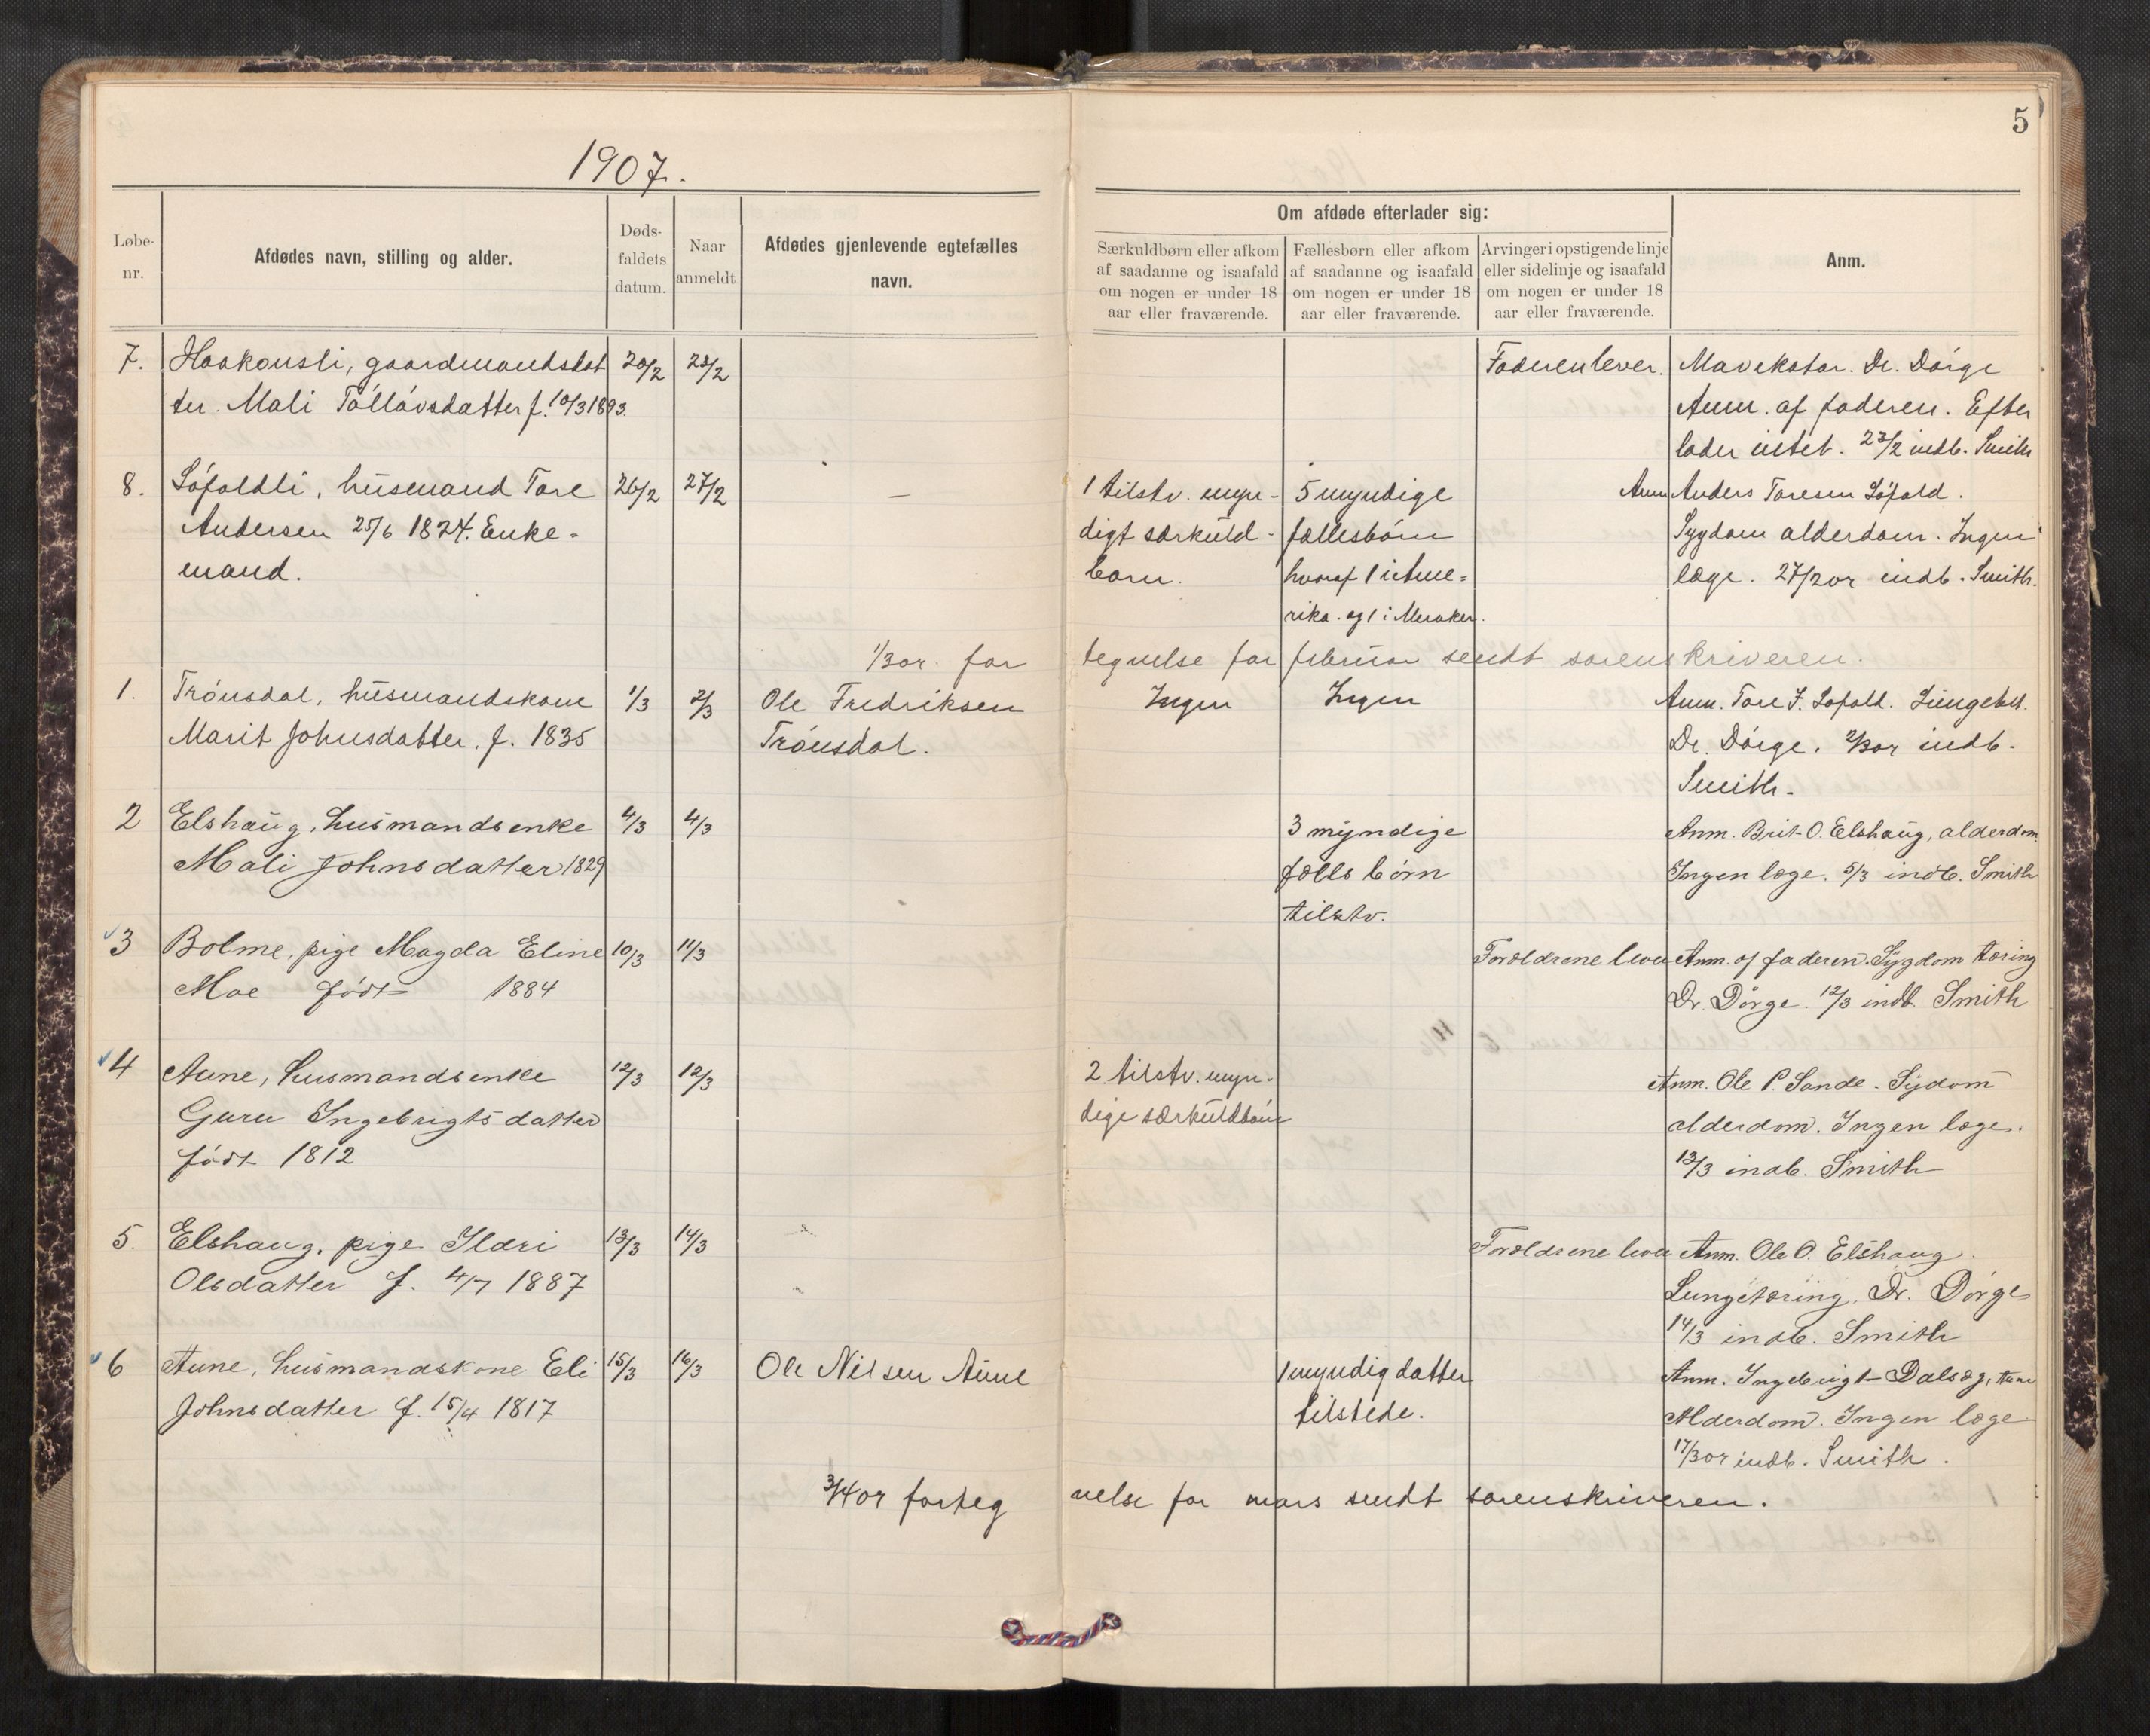 5
1907.
Løbe-
nr.
Afdødes navn, stilling og alder.
Døds-
faldets
datum.
Naar
anmeldt
Afdødes gjenlevende egtefælles
navn.
Om afdøde efterlader sig:
Særkuldbørn eller afkom
af saadanne og isaafald
om nogen er under 18
aar eller fraværende.
Fællesbørn eller afkom
af saadanne og isaafald
om nogen er under 18
aar eller fraværende.
Arvinger i opstigende linje
eller sidelinje og isaafald
om nogen er under 18
aar eller fraværende.
Anm.
7. Haakonsli, gaardmandsdat 20/2 23/2 Faderen lever. Mavekatar. Dr. Dórge
ter. Mali Tóllávsdatter f. 10/3 1893. Anm. af faderen. Efter
lader intet. 23/2 indb. Smith
8. Lófaldli, húsmand Tore 26/2 27/2 — 1 tilstv. myn- 5 myndige Anm Anders Toresen Lófald.
Andersen 25/6 1824. Enke- digt særkúld- fællesbórn Sygdom alderdom. Ingen
mand. barn. hvoraf 1 i Ame- læge. 27/2 07 indb. Smith.
rika. og 1 i Meraker.
1/3 07. for tegnelse for februar sendt sorenskriveren.
1. Trónsdal, húsmandskone 1/3 2/3 Ole Fredriksen Ingen Ingen Anm. Tore F. Lofald. Lúngebet.
Marit Johnsdatter. f. 1835 Trónsdal. Dr. Dórge. 2/3 07 indb.
Smith.
2 Elshaúg, húsmandsenke 4/3 4/3 3 mýndige Anm. Brit O. Elshaúg, alderdom.
Mali Johnsdatter 1829 fælls børn Ingen læge. 5/3 indb. Smith
tilstv.
3 Bolme, pige Magda Eline 10/3 11/3 Forældrene leve Anm. af faderen. Sýgdom tæring
Moe født 1884 Dr. Dørge. 12/3 indb. Smith
4 Aune, húsmandsenke 12/3 12/3 2 tilstv. myn- Anm. Ole P. Sande. Sýdom
Guru Ingebrigtsdatter dige særkúldbórn alderdom. Ingen læge.
født 1812 13/3 indb. Smith
5. Elshaug, pige Ildri 13/3 14/3 Forældrene leve Anm. Ole O. Elshaug.
Olsdatter f. 4/7 1887 Lungetæring. Dr. Dørge
14/3 indb. Smith
6 Aune, húsmandskone Eli 15/3 16/3 Ole Nilsen Aúne 1 myndig datter Anm. Ingebrigt Dalsæg,
Johnsdatter f. 15/4 1817 tilstede. Alderdom. Ingen læge
17/3 07 indb. Smith.
3/4 07 forteg nelse for mars sendt sorenskriveren.